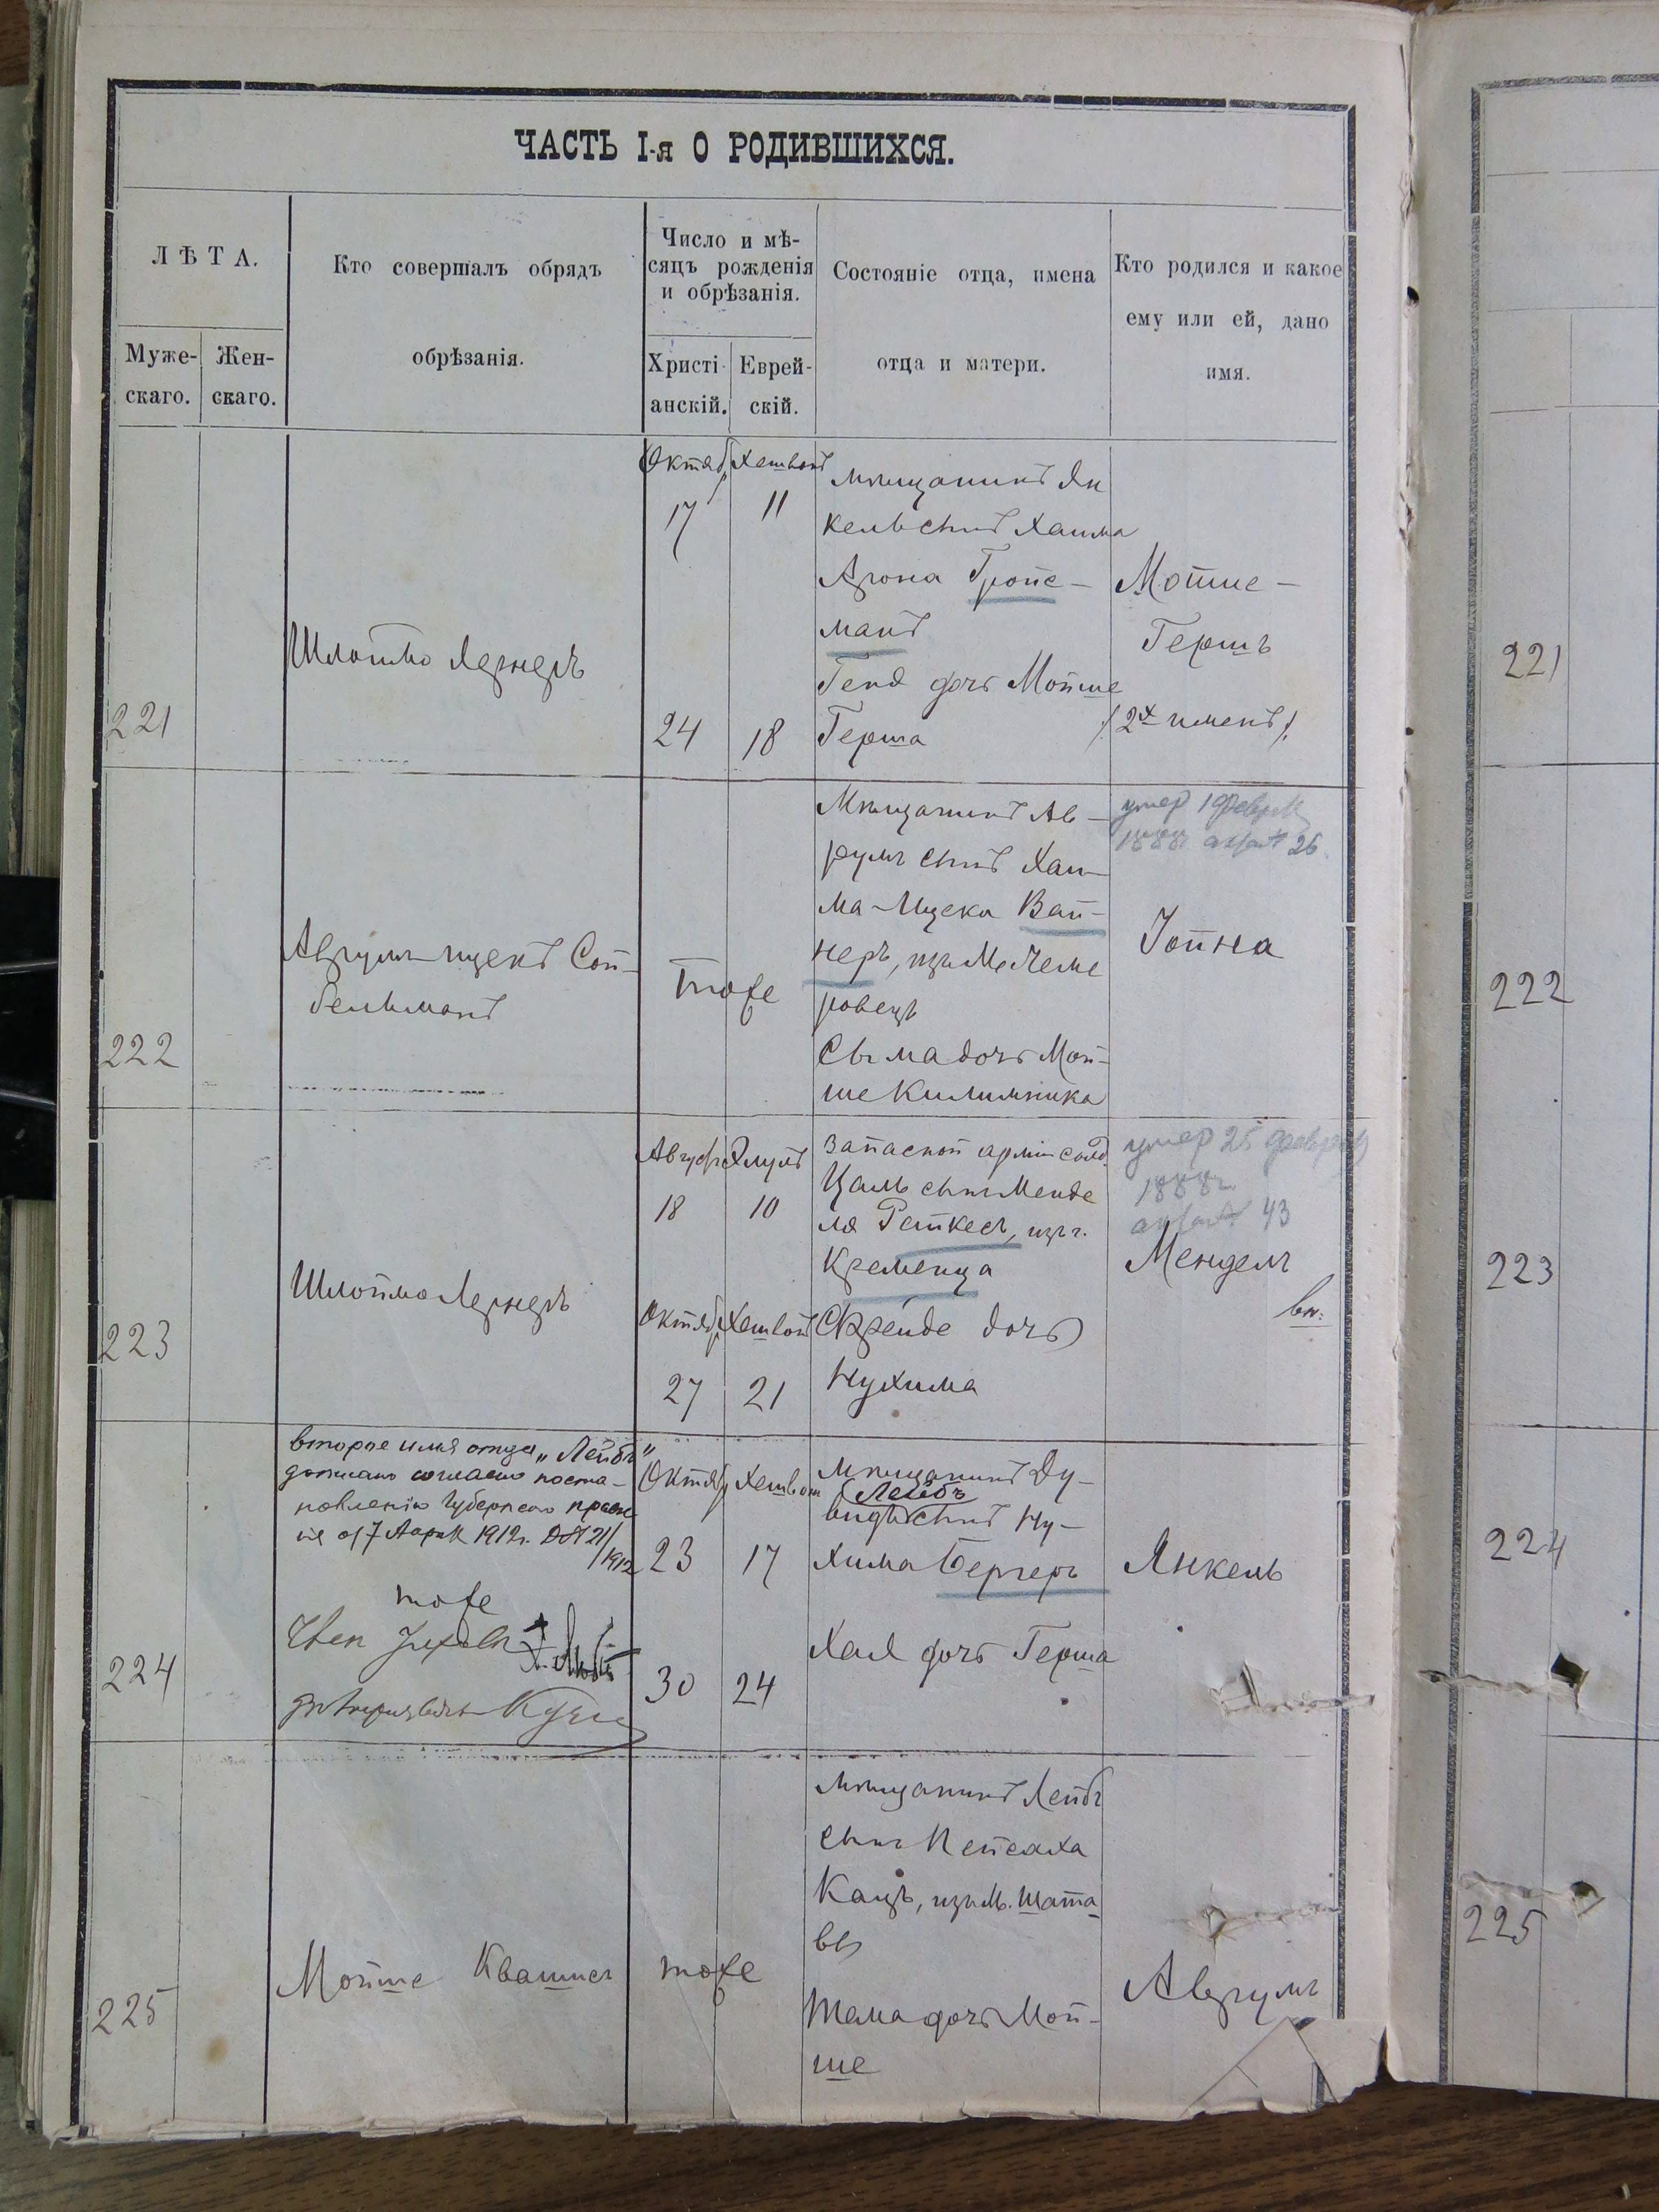 ЧАСТЬ I-я О РОДИВШИХСЯ.
ЛѢТА.
Муже-
скаго.
Жен-
скаго.
Кто совершалъ обрядъ
обрѣзанія.
Число и мѣ-
сяцъ рожденія
и обрѣзанія.
Христі-
анскій.
Еврей-
скій.
Состояніе отца, имена
отца и матери.
Кто родился и какое
ему или ей, дано
имя.
221
Шлойме Лернеръ
Октяб Хешвонъ
17 11
24 18
мѣщанинъ Ян
кель сынъ Хаима
Арона Гройс-
манъ
Геня дочь Мойше
Герша
Мойше-
Гершъ
/2х именъ/.
221
222
Аврумъ-Ицекъ Сой-
бельманъ
тоже
Мѣщанинъ Ав-
румъ сынъ Хаи-
ма-Ицека Вай-
неръ, изъ м. Чеме
ровецъ
Сыма дочь Мой-
ше Килимника
умер 1 Февраля
1888г. 26
Іойна
222
223
Шлойме Лернеръ
Август Элулъ
18 10
Октяб Хешвонъ
27 21
Запасной арміи солд.
Цаль сынъ Менде
ля Рейкесъ, изъ г.
Кременца
Фрейде дочь
Нухима
умер 25 февраля
1888г.
43
Мендель
вн:
223
224
второе имя отца „Лейбъ"
дописано согласно поста-
новленію Губернского правле
ія от 7 Апреля 1912г. Д № 21/
/1912
тоже
Октяб Хешвон
23 17
30 24
Мѣщанинъ Ду-
(Лейбъ
видъ сынъ Ну-
хима Бергеръ
Хая дочь Герша
Янкель
224
225
Мойше Квашнеч
тоже
мѣщанинъ Лейбъ
сынъ Пейсаха
Кацъ, изъ м. Шата-
вы
Тема дочь Мой-
ше
Аврумъ
225